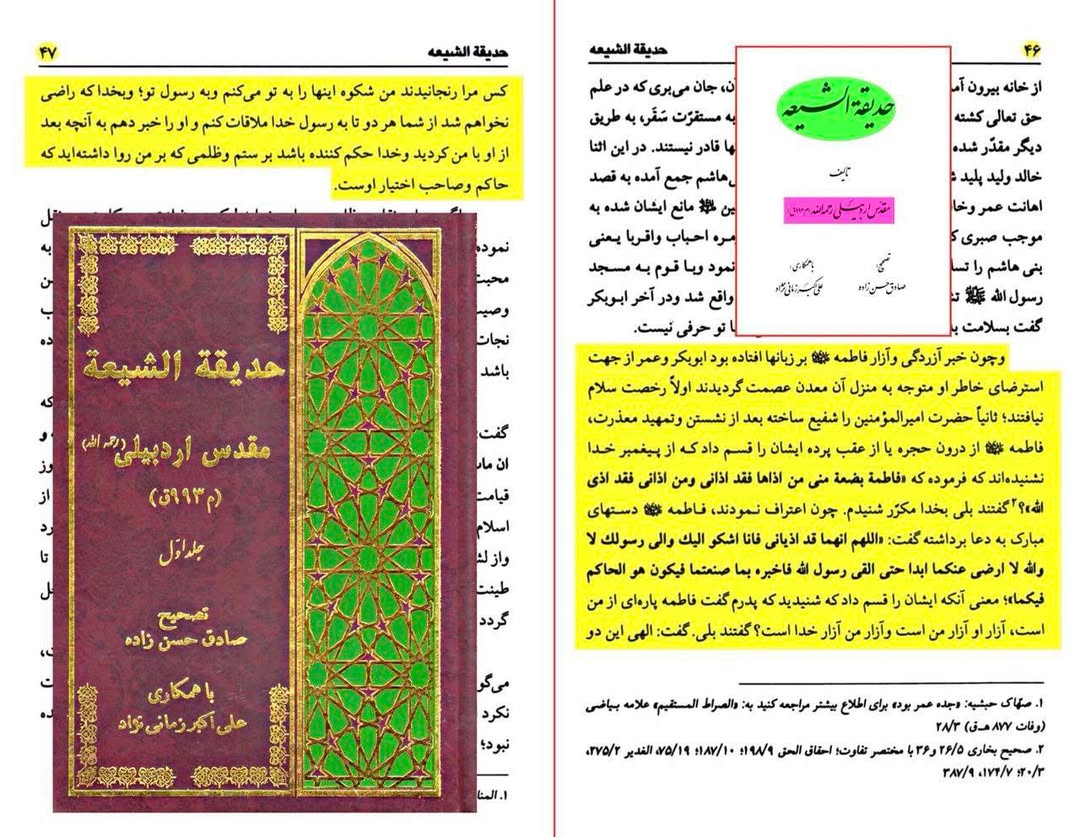 ۴۶
حدیقة الشیعه
از خانه بیرون آمد
حق تعالی کشته
دیگر مقدّر شده
خالد ولید پلید
اهانت عمر وخا
موجب صبری ک
بنی هاشم را تسا
رسول الله ﷺ
گفت بسلامت
آن، جان می‌بری که در علم
به مستقرّت سَقَر، به طریق
ها قادر نیستند. در این اثنا
هاشم جمع آمده به قصد
مانع ایشان شده به
مره احباب واقربا یعنی
نمود وبا قوم به مسجد
واقع شد ودر آخر ابوبکر
تو حرفی نیست.
حدیقة الشیعه
تألیف
مقدس اردبیلی رحمه الله (م ۹۹۳ق)
تصحیح:
صادق حسن زاده
باهمکاری:
علی اکبر زمانی نژاد
وچون خبر آزردگی وآزار فاطمه بر زبانها افتاده بود ابوبکر وعمر از جهت
استرضای خاطر او متوجه به منزل آن معدن عصمت گردیدند اولاً رخصت سلام
نیافتند؛ ثانیاً حضرت امیرالمؤمنین را شفیع ساخته بعد از نشستن وتمهید معذرت،
فاطمه از درون حجره یا از عقب پرده ایشان را قسم داد که از پیغمبر خدا
نشنیده‌اند که فرموده که «فاطمة بضعة منی من آذاها فقد اذانی ومن اذانی فقد اذی
الله»؟۲ گفتند بلی بخدا مکرّر شنیدم. چون اعتراف نمودند، فاطمه دستهای
مبارک به دعا برداشته گفت: «اللهم انهما قد اذیانی فانا اشکو الیك والی رسولك لا
والله لا ارضی عنکما ابدا حتی القی رسول الله فاخبره بما صنعتما فیکون هو الحاکم
فیکما»؛ معنی آنکه ایشان را قسم داد که شنیدید که پدرم گفت فاطمه پاره‌ای از من
است، آزار او آزار من است وآزار من آزار خدا است؟ گفتند بلی. گفت: الهی این دو
۱. صهّاک حبشیه: «جده عمر بود» برای اطلاع بیشتر مراجعه کنید به: «الصراط المستقیم» علامه بیاضی
(وفات ۸۷۷ هـ.ق) ۲۸/۳
۲. صحیح بخاری ۲۶/۵ و۳۶ با مختصر تفاوت؛ احقاق الحق ۱۹۸/۹؛ ۱۸۷/۱۰؛ ۷۵/۱۹، الغدیر ۲۷۵/۲،
۲۰/۳؛ ۱۷۴/۷، ۳۸۷/۹
حدیقة الشیعه
۴۷
کس مرا رنجانیدند من شکوه اینها را به تو می‌کنم وبه رسول تو؛ وبخدا که راضی
نخواهم شد از شما هر دو تا به رسول خدا ملاقات کنم و او را خبر دهم به آنچه بعد
از او با من کردید وخدا حکم کننده باشد بر ستم وظلمی که بر من روا داشته‌اید که
حاکم وصاحب اختیار اوست.
نموده
محبت
وصی
نجات
باشد
گفت:
ان ما
قیامت
اسلام
واز لش
طینت
گردد
می‌گو
نکرد
نبود؛
۱. المنا
حدیقة الشیعة
مقدس اردبیلی (رحمه الله)
(م ۹۹۳ق)
جلد اوّل
تصحیح
صادق حسن زاده
باهمکاری
علی اکبر زمانی نژاد